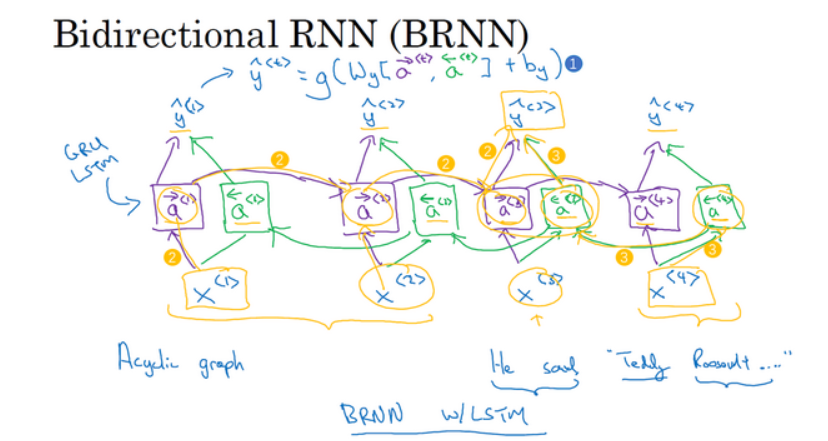 Bidirectional RNN (BRNN)
ŷ<t> = g(Wy[a→<t>, a←<t>] + by) 1
ŷ<1> ŷ<2> ŷ<3> ŷ<4>
GRU
LSTM
2 2 2 3
a→<1> a←<1> a→<2> a←<2> a→<3> a←<3> a→<4> a←<4>
2 3 3
x<1> x<2> x<3> x<4>
Acyclic graph He said "Teddy Roosevelt...."
BRNN w/LSTM